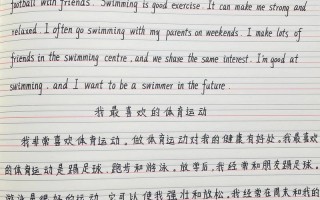 football with friends. Swimming is good exercise. It can make me strong and
relaxed. I often go swimming with my parents on weekends. I make lots of
friends in the swimming centre, and we share the same interest. I'm good at
swimming, and I want to be a swimmer in the future.
我最喜欢的体育运动
我非常喜欢体育运动。做体育运动对我的健康有好处。我最喜欢
的体育运动是踢足球、跑步和游泳。放学后,我经常和朋友踢足球。
游泳是很好的运动。它可以使我强壮和放松。我经常在周末和我的